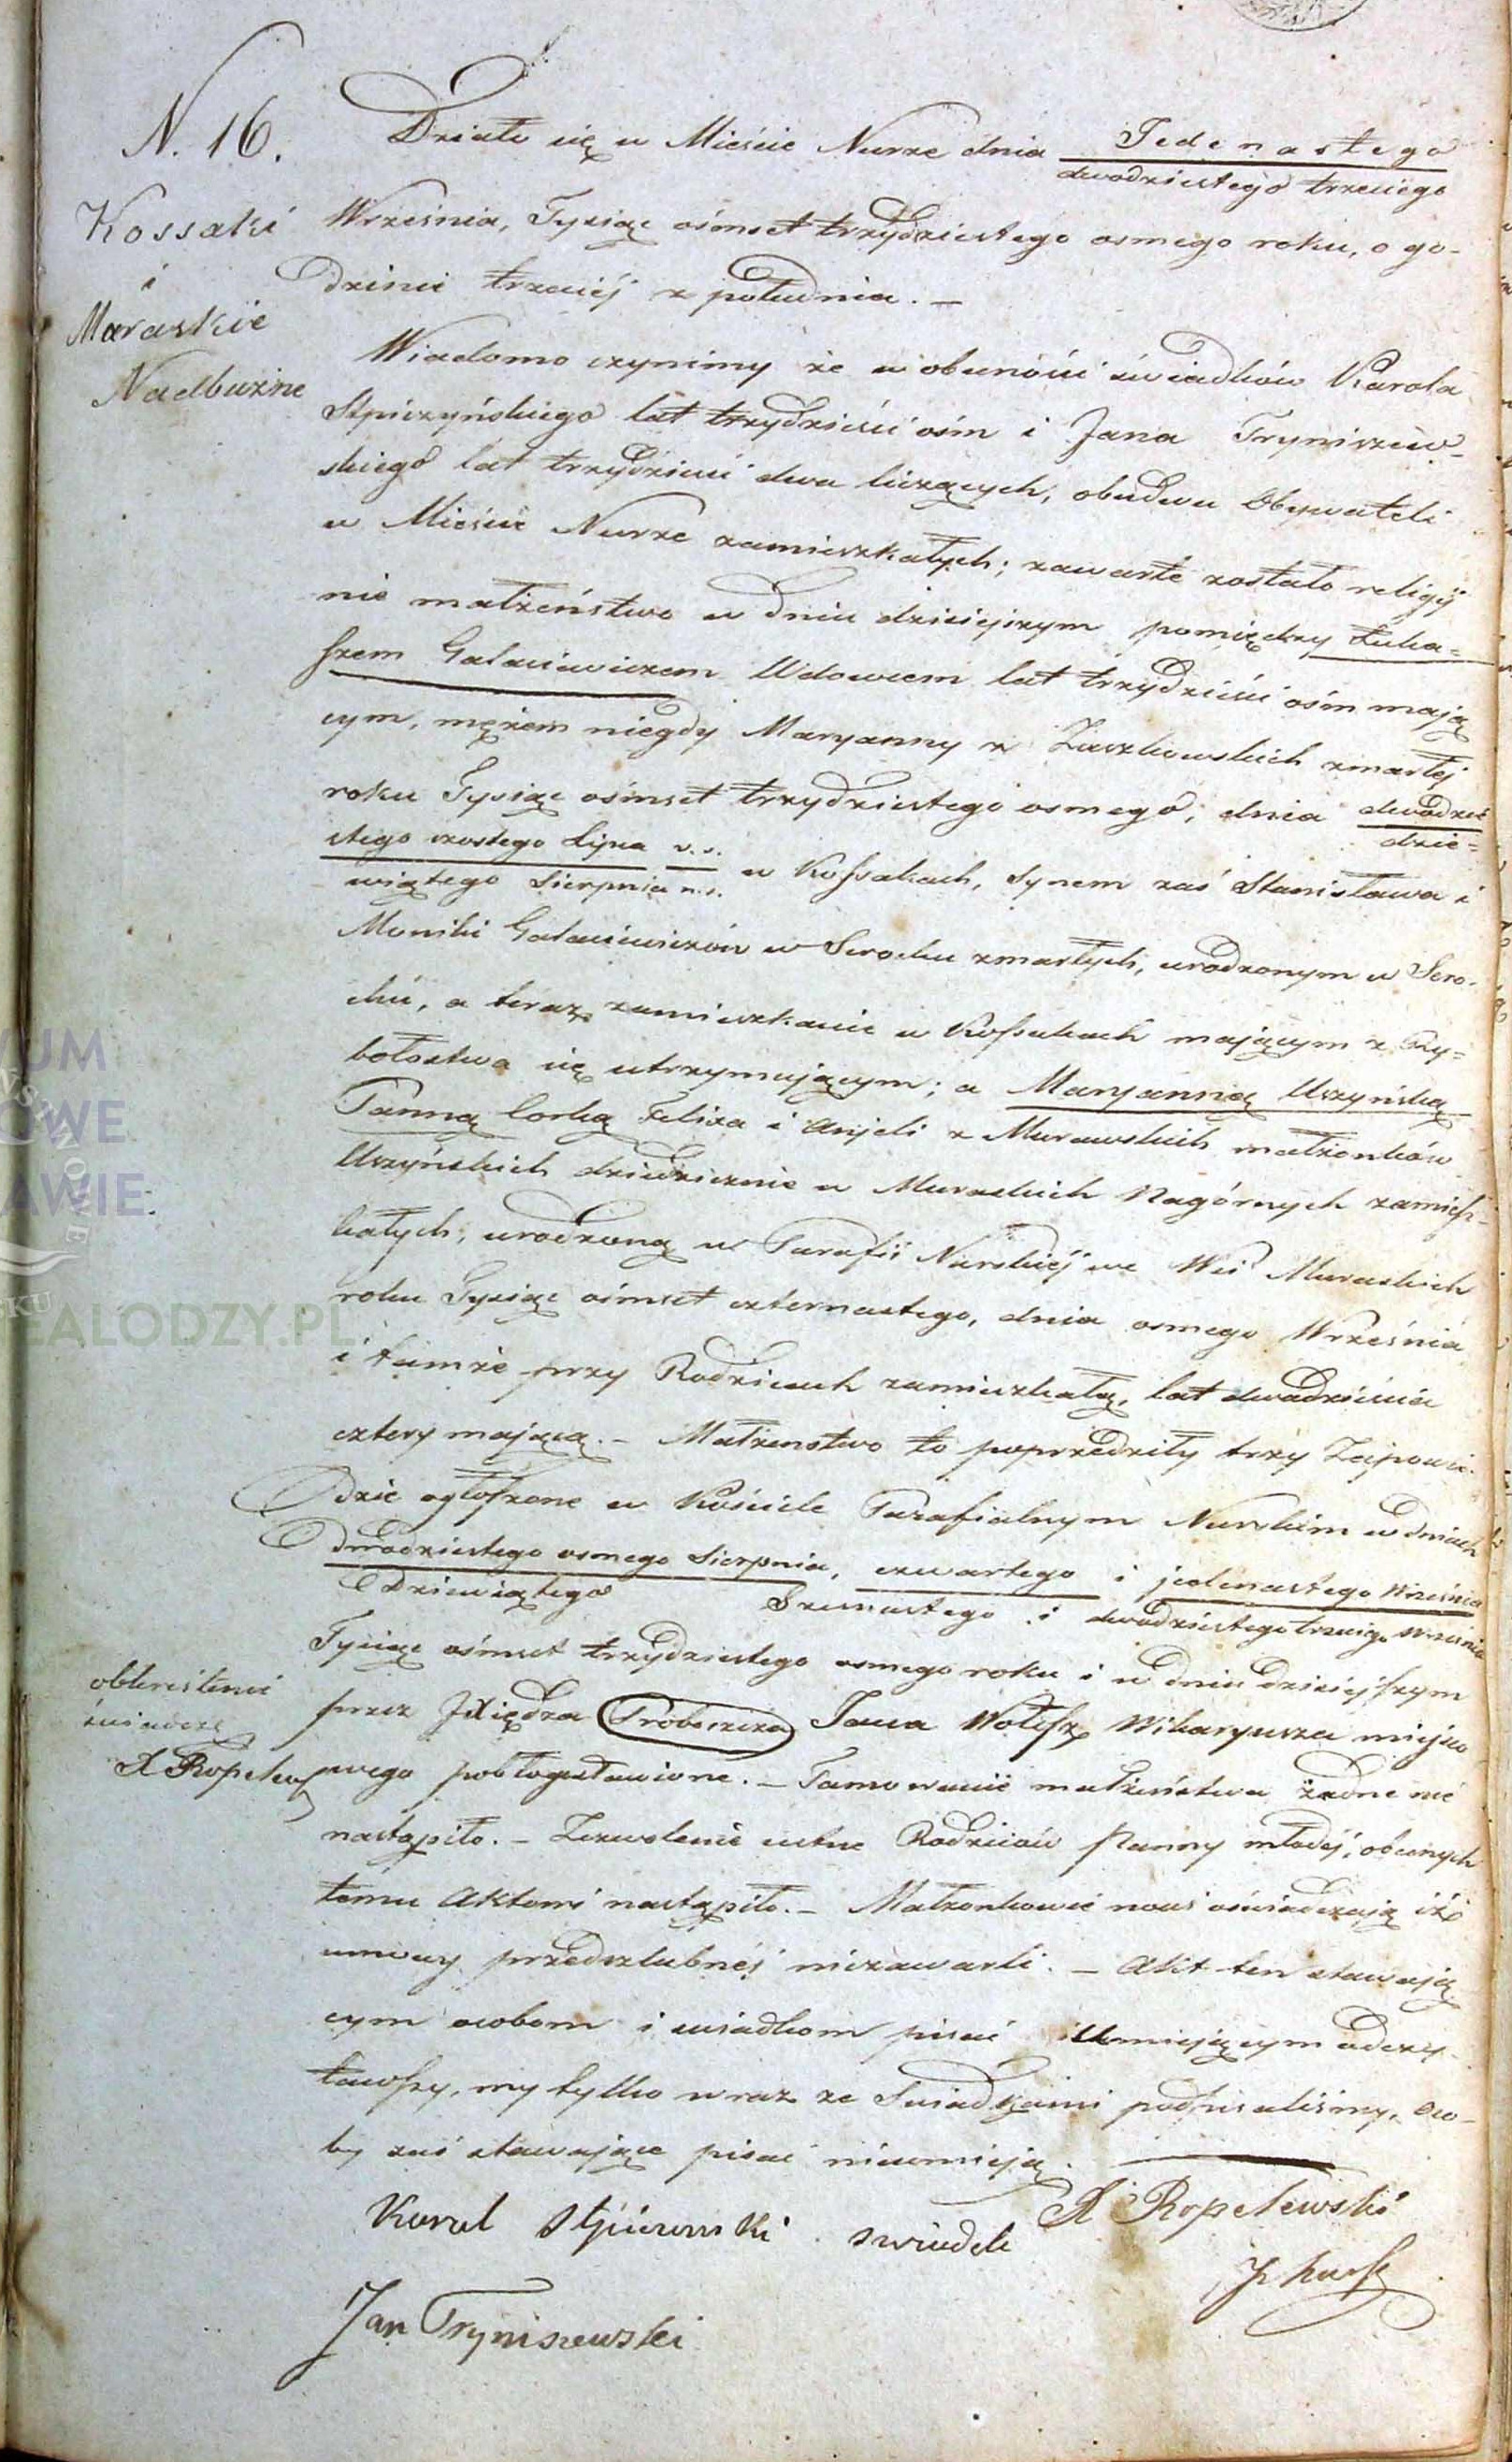 N. 16.
Kossaki
i
Muraskie
Nadbużne
Działo się w Mieście Nurze dnia Jedenastego
dwudziestego trzeciego
Września, Tysiąc ośmset trzydziestego osmego roku, o go-
dzinie trzeciéj z południa. —
Wiadomo czynimy że w obecności świadków Karola
Stpiczyńskiego lat trzydzieści ośm i Jana Tryniszew-
skiego lat trzydzieści dwa liczących, obudwu Obywateli
w Mieście Nurze zamieszkałych; zawarte zostało religij
nie małżeństwo w dniu dzisiejszym pomiędzy Łuka=
szem Gałasiewiczem Wdowcem lat trzydzieści ośm mają
cym, mężem niegdy Maryanny z Zaszkowskich zmarłej
roku Tysiąc ośmset trzydziestego osmego, dnia dwudzie
dzie=
stego szostego Lipca v.s.
wiątego Sierpnia n.s. w Kossakach, Synem zaś Stanisława i
Moniki Gałasiewiczów w Serocku zmarłych, urodzonym w Sero-
cku, a teraz zamieszkanie w Kossakach mającym z Ry=
bołostwa się utrzymującym; a Maryanną Uszyńską
Panną Corką Felixa i Anjeli z Murawskich małżonków
Uszyńskich dziedzicznie w Muraskich Nagórnych zamiesz-
kałych, urodzoną w Parafii Nurskiéj we Wsi Muraskich
roku Tysiąc ośmset czternastego, dnia osmego Września
i tamże przy Rodzicach zamieszkałą, lat dwadzieścia
cztery mającą. — Małzenstwo to poprzedziły trzy Zapowie-
dzie ogłoszone w Kościele Parafialnym Nurskim w dniach
Dwudziestego osmego Sierpnia, czwartego i jedenastego Września
Dziewiątego Szesnastego i dwudziestego trzeciego Września
Tysiąc ośmset trzydziestego osmego roku i w dniu dzisiejszym
obkreślenie
świadczę
X Ropelews
przez Xiędza Proboszcza Jana Wikaryusza miejsco
wego pobłogosławione. — Tamowanie małżeństwa żadne nie
nastąpiło. — Zezwolenie ustne Rodziców Panny młodéj, obecnych
temu Aktowi nastąpiło. — Małzonkowie nowi oświadczają iż
umowy przedszlubnéj niezawarli. — Akt ten stawają
cym osobom i swiadkom pisać umiejącym odczy-
tawszy, my tylko wraz ze Swiadkami podpisaliśmy, oso-
by zaś stawające pisać nieumieją.
X Ropelewski
Karol Stpiczyński swiadek
Jan Tryniszewski